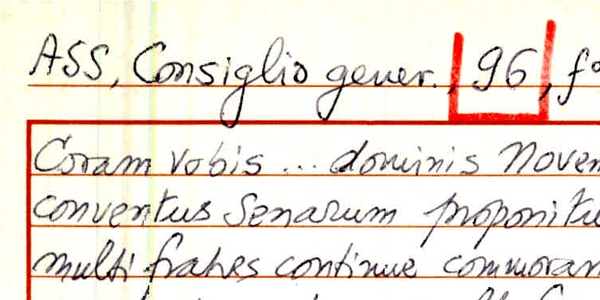 ASS, Consiglio gener., 96, fo
Coram vobis ... dominis Novem
conventus Senarum proponitu
multi fratres continue commoran